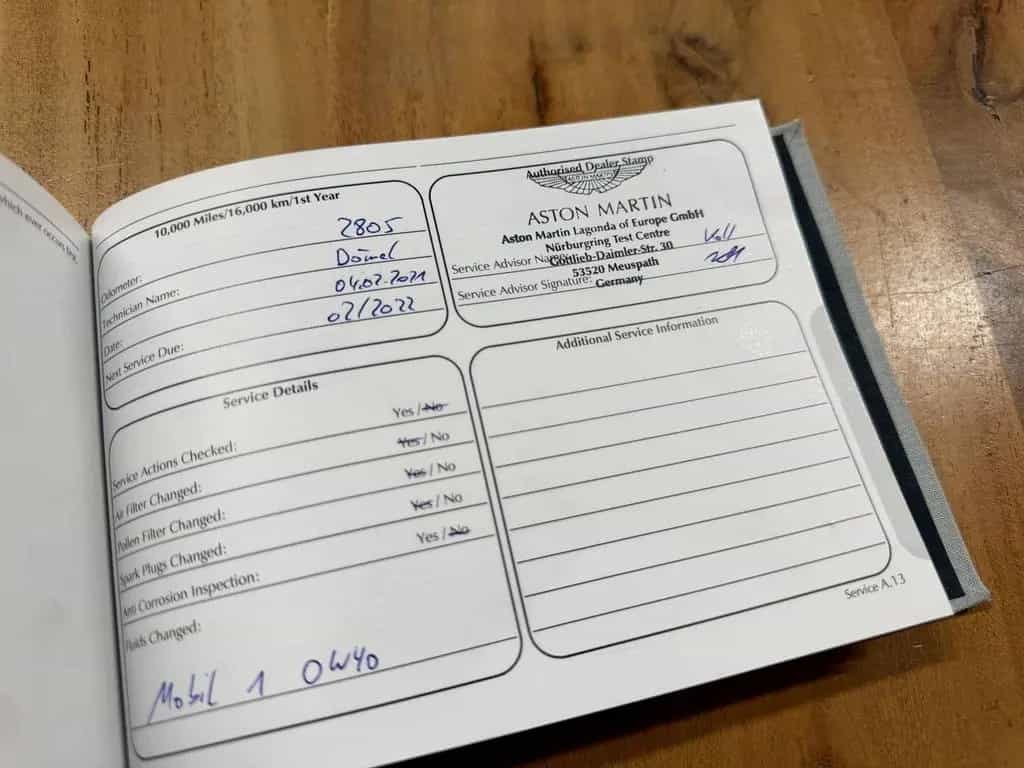 which ever occurs first
10,000 Miles/16,000 km/1st Year
Odometer: 2805
Technician Name: Dömel
Date: 04.02.2021
Next Service Due: 02/2022
Authorised Dealer Stamp
ASTON MARTIN
ASTON MARTIN
Aston Martin Lagonda of Europe GmbH
Nürburgring Test Centre
Service Advisor Name: Gottlieb-Daimler-Str. 30
53520 Meuspath
Service Advisor Signature: Germany
Service Details
Service Actions Checked: Yes / No
Air Filter Changed: Yes / No
Pollen Filter Changed: Yes / No
Spark Plugs Changed: Yes / No
Anti Corrosion Inspection: Yes / No
Fluids Changed:
Mobil 1 0W40
Additional Service Information
Service A.13